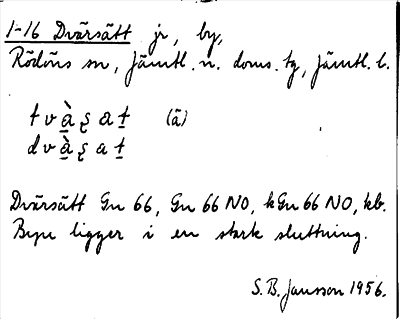 1-16 Dvärsätt jr, by,
Rödöns sn, Jämtl. n. doms. tg, Jämtl. l.
(ä)
Dvärsätt Gn 66, Gn 66 NO, kGn 66 NO, kb.
Byn ligger i en stark sluttning.
S. B. Jansson 1956.